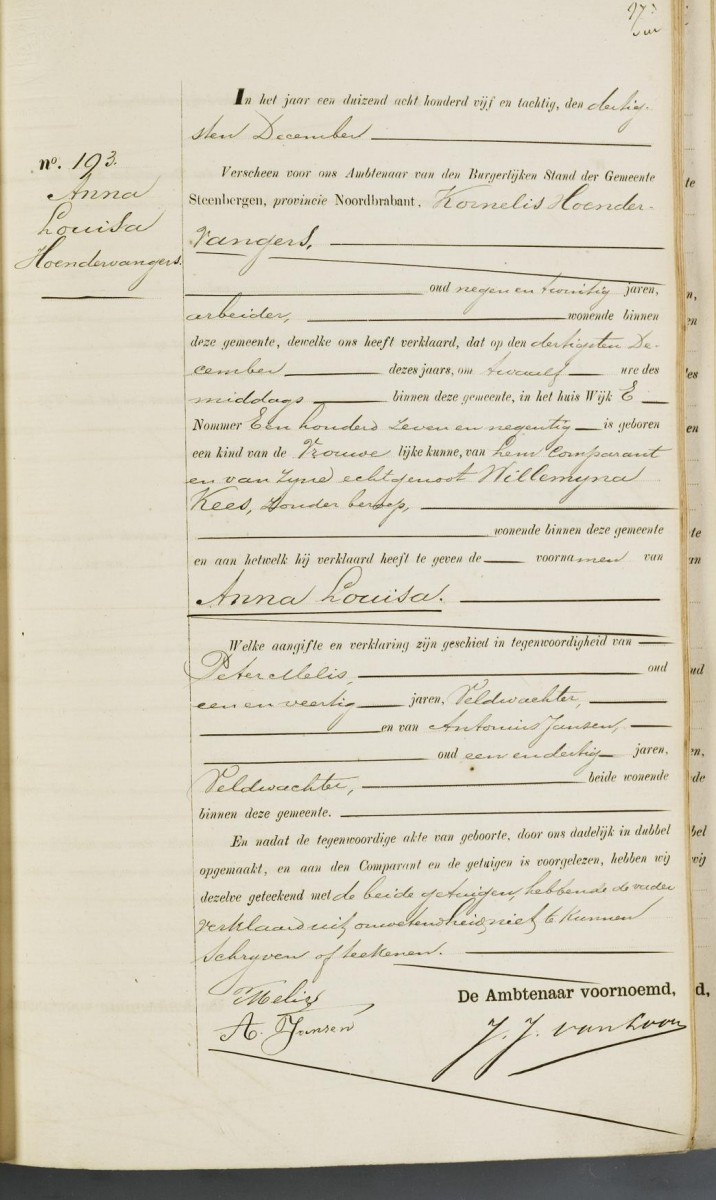 97
In het jaar een duizend acht honderd vijf en tachtig, den dertig-
sten December
no. 193.
Anna
Louisa
Hoendervangers.
Verscheen voor ons Ambtenaar van den Burgerlijken Stand der Gemeente
Steenbergen, provincie Noordbrabant. Kornelis Hoender-
vangers,
oud negen en twintig jaren,
arbeider, wonende binnen
deze gemeente, dewelke ons heeft verklaard, dat op den dertigsten De-
cember dezes jaars, om twaalf ure des
middags binnen deze gemeente, in het huis Wijk E
Nommer Een honderd zeven en negentig is geboren
een kind van de Vrouwe lijke kunne, van hem comparant
en van zyne echtgenoot Willemyna
Kees, zonder beroep,
wonende binnen deze gemeente
en aan hetwelk hij verklaard heeft te geven de voornamen van
Anna Louisa.
Welke aangifte en verklaring zijn geschied in tegenwoordigheid van
Peter Melis, oud
een en veertig jaren, Veldwachter,
en van Antonius Jansen,
oud een en dertig jaren,
Veldwachter, beide wonende
binnen deze gemeente.
En nadat de tegenwoordige akte van geboorte, door ons dadelijk in dubbel
opgemaakt, en aan den Comparant en de getuigen is voorgelezen, hebben wij
dezelve geteekend met de beide getuigen, hebbende de vader
verklaard uit onwetendheid niet te kunnen
schryven of teekenen.
Melis
De Ambtenaar voornoemd,
A. Jansen
J. J. van Loon